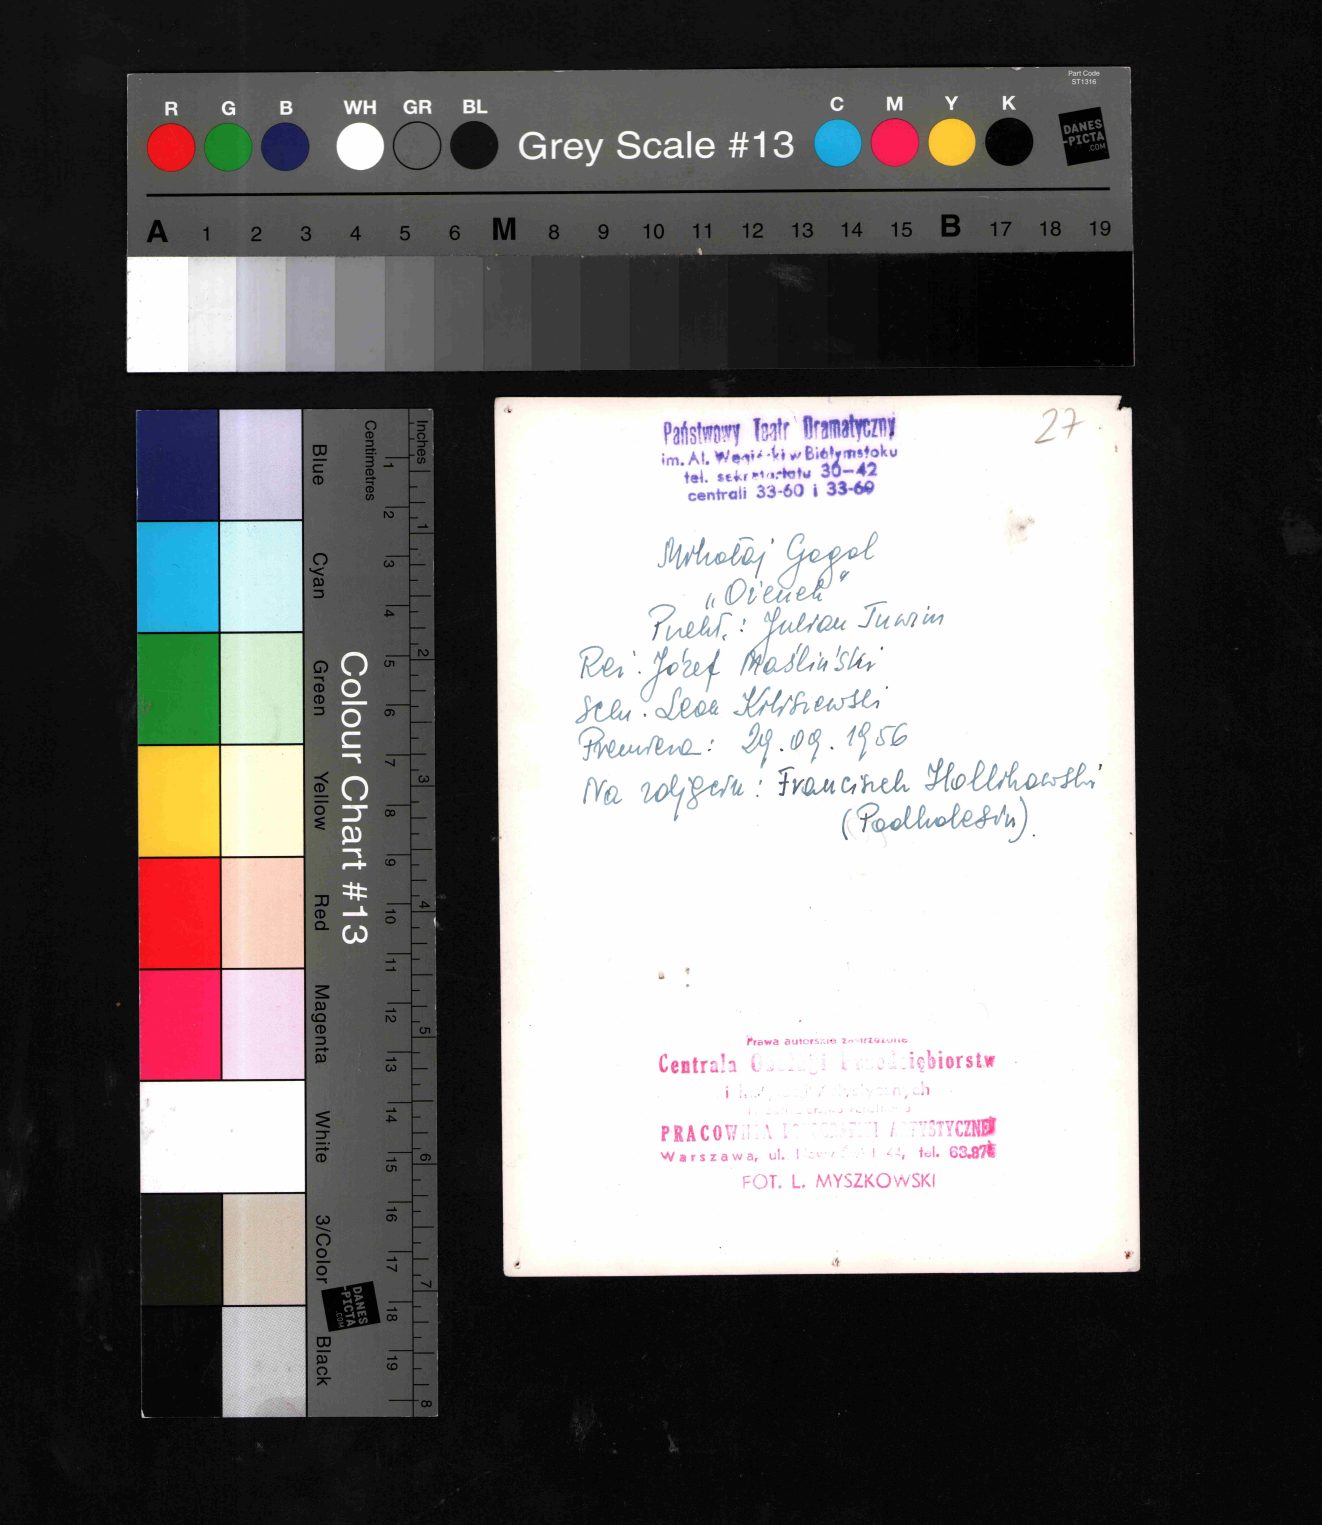 Part Code
ST1316
R G B WH GR BL
Grey Scale #13
C M Y K
DANES
-PICTA
.COM
A 1 2 3 4 5 6 M 8 9 10 11 12 13 14 15 B 17 18 19
Blue
Cyan
Green
Yellow
Red
Magenta
White
3/Color
Black
Colour Chart #13
DANES
-PICTA
.COM
Centimetres
1 2 3 4 5 6 7 8 9 10 11 12 13 14 15 16 17 18 19
Inches
1 2 3 4 5 6 7 8
27
Państwowy Teatr Dramatyczny
im. Al. w Białymstoku
tel. sekretariatu 30-42
centrali 33-60 i 33-69
Mikołaj Gogol
„Ożenek”
Przekł.: Julian Tuwim
Reż. Józef Maśliński
Scen. Leon
Premiera: 29.09.1956
Na zdjęciu: Franciszek
(Podkolesin).
Prawa autorskie zastrzeżone
Centrala
PRACOWNIA
Warszawa, ul. tel. 63.87
FOT. L. MYSZKOWSKI